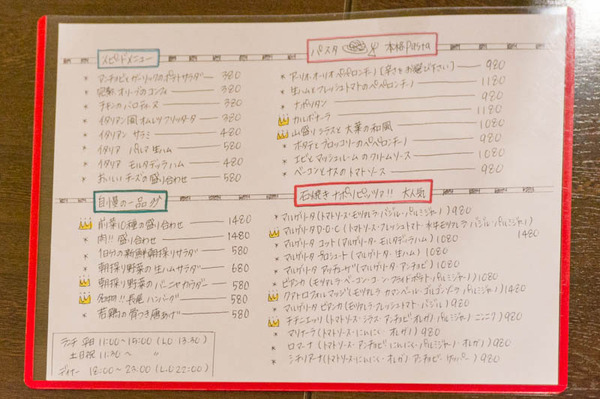 スピードメニュー
アンチョビとガーリックのポテトサラダー 380
発酵 オリーブのコンフィ 380
チキンのバロティーヌ 380
イタリアン風 オムレツ フリッタータ 380
イタリアン サラミ 480
イタリア パルマ 生ハム 580
イタリア モルタデッラハム 480
おいしい チーズの盛り合わせ 580
自慢の一品
前菜10種の盛り合わせ 1480
肉!! 盛り合わせ 1480
1日分の新鮮朝採りサラダー 580
朝採り野菜の生ハムサラダー 680
朝採り野菜のバーニャカウダー 580
名物!! 長尾 ハンバーグ 580
若鶏の骨つき唐あげ 580
ランチ 平日 11:00〜15:00 (L.O 13:30)
土日祝 11:30〜 〃
ディナー 18:00〜23:00 (L.O 22:00)
パスタ 本格Pasta
アーリオ・オーリオ ペペロンチーノ (辛さをお選び下さい) 980
生ハムとフレッシュトマトのペペロンチーノ 1180
ナポリタン 980
カルボナーラ 1180
山盛りシラスと大葉の和風 980
ポタテとブロッコリーのペペロンチーノ 980
エビとマッシュルームのクリームソース 980
ベーコンとナスのトマトソース 980
石焼きナポリピッツァ!! 大人気
マルゲリータ (トマトソース・モツァレラ・バジル・パルミジャーノ) 980
マルゲリータ D.O.C (トマトソース・フレッシュトマト・水牛モツァレラ バジル・パルミジャーノ) 1480
マルゲリータ コット (マルゲリータ・モルタデッラハム) 1080
マルゲリータ プロシュート (マルゲリータ・生ハム) 1080
マルゲリータ アッチューゲ (マルゲリータ アンチョビ) 1080
ビアンカ (モツァレラ・ベーコン・コーン・フライドポテト・パルミジャーノ) 1080
クアトロフォルマッジ (モツァレラ・カマンベール・ゴルゴンゾーラ・パルミジャーノ) 1480
マルゲリータ ビアンカ (モツァレラ・フレッシュトマト・バジル) 980
チチニエッリ (トマトソース・シラス・アンチョビ・オレガノ・パルミジャーノ・ニンニク) 980
マリナーラ (トマトソース・にんにく・オレガノ) 980
ロマーナ (トマトソース・アンチョビ・にんにく・パルミジャーノ・オレガノ) 980
シチリアーナ (トマトソース・にんにく・オレガノ・アンチョビ・ケッパー) 980